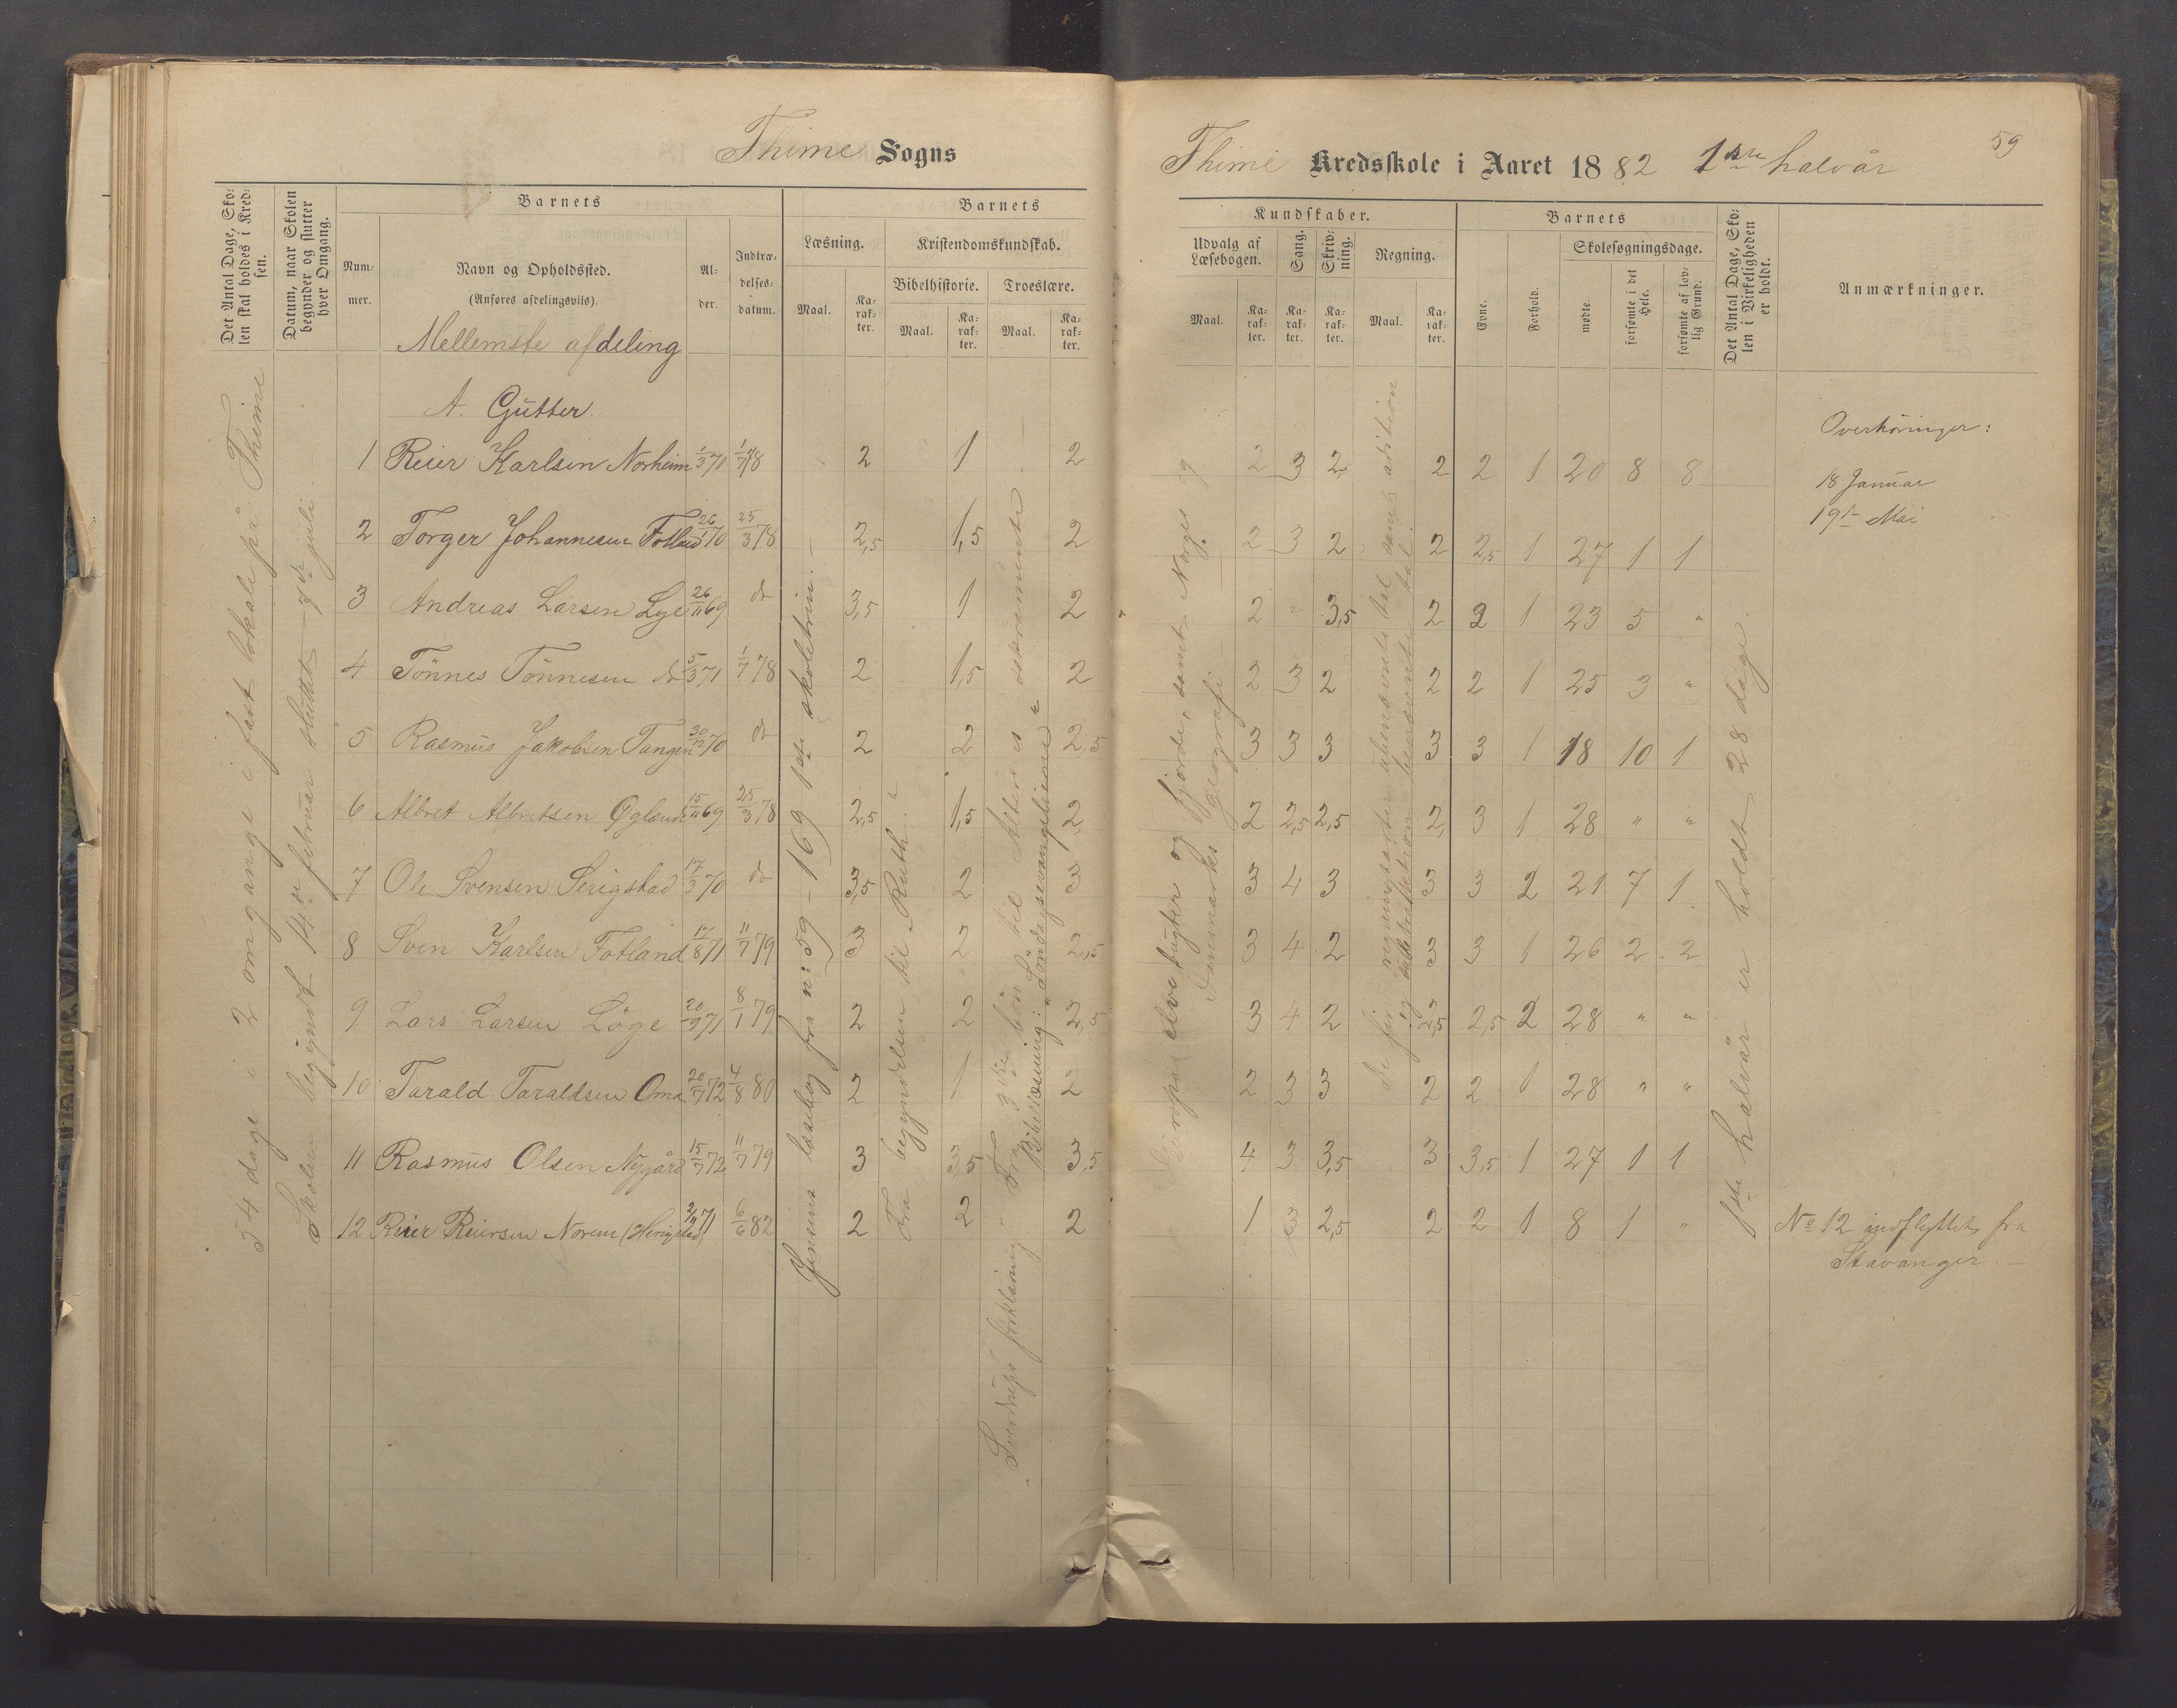 Thime Sogns
Thime Kredsskole i Aaret 1882 1ste halvår
59
Det Antal Dage, Sko-
len skal holdes i Kred-
sen.
Datum, naar Skolen
begynder og slutter
hver Omgang.
Barnets
Num-
mer.
Navn og Opholdssted.
(Anføres afdelingsviis).
Al-
der.
Indtræ-
delses-
datum.
Barnets
Læsning.
Maal.
Ka-
rak-
ter.
Kristendomskundskab.
Bibelhistorie.
Maal.
Ka-
rak-
ter.
Troeslære.
Maal.
Ka-
rak-
ter.
Kundskaber.
Udvalg af
Læsebogen.
Maal.
Ka-
rak-
ter.
Sang.
Ka-
rak-
ter.
Skriv-
ning.
Ka-
rak-
ter.
Regning.
Maal.
Ka-
rak-
ter.
Barnets
Evne.
Forhold.
Skolesøgningsdage.
mødte.
forsømte i det
Hele.
forsømte af lov-
lig Grund.
Det Antal Dage, Sko-
len i Virkeligheden
er holdt.
Anmærkninger.
Mellemste afdeling
A. Gutter.
54 dage i 2 omgange i fast lokale på Thime
Skolen begyndt 14de februar sluttet 7de juli.
Jensens læsebog fra n: 59 – 169 1ste skoletrin.
Fra begyndelsen til „Ruth."
Sverdrups forklaring Fra 3die bøn til Alterets sakramente
Bibellæsning: „Søndagsevangelierne"
elve bugter og fjorde, samt Norges og
Danmarks geografi
De fire regningsarter ubenævnte tal samt addition
og subtraktion benævnte tal
1ste halvår er holdt 28 dage.
1 Reier Karlsen Norheim 1/3 70 1/7 78 2 1 2 2 3 2 2 2 1 20 8 8
2 Torger Johannesen Fotland 26/1 70 25/3 78 2,5 1,5 2 2 3 2 2 2,5 1 27 1 1
3 Andreas Larsen Lye 26/11 69 do 3,5 1 2 2 " 3,5 2 2 1 23 5 "
4 Tönnes Tönnesen do 5/3 71 1/7 78 2 1,5 2 2 3 2 2 2 1 25 3 "
5 Rasmus Jakobsen Tangen 30/12 70 do 2 2 2,5 3 3 3 3 3 1 18 10 1
6 Albret Albretsen Øglænd 15/11 69 25/3 78 2,5 1,5 2 2 2,5 2,5 2 3 1 28 " "
7 Ole Svensen Serigstad 17/3 70 do 3,5 2 3 3 4 3 3 3 2 21 7 1
8 Sven Karlsen Fotland 17/8 71 11/7 79 3 2 2,5 3 4 2 3 3 1 26 2 2
9 Lars Larsen Löge 20/9 71 8/1 79 2 2 2,5 3 4 2 2,5 2,5 2 28 " "
10 Tarald Taraldsen Oma 20/7 72 4/8 80 2 1 2 2 3 3 2 2 1 28 " "
11 Rasmus Olsen Nygård 15/7 72 11/7 79 3 3,5 3,5 4 3 3,5 3 3,5 1 27 1 1
12 Reier Reiersen Norem 71 6/6 82 2 2 2 1 3 2,5 2 2 1 8 1 "
Overhöringer:
18 Januar
19de Mai
No 12 indflyttet fra
Stavanger